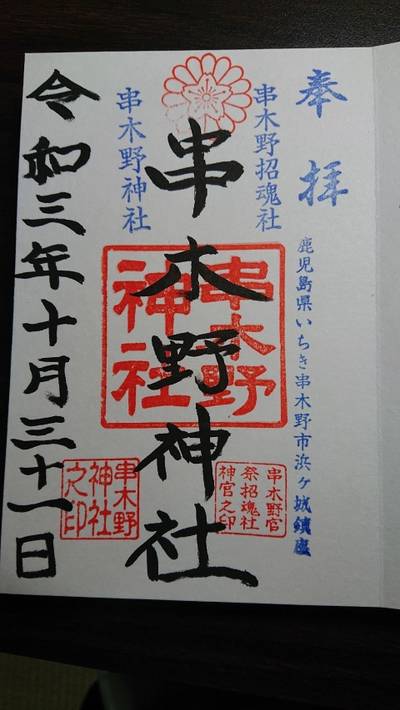 奉拝
鹿児島県いちき串木野市浜ヶ城鎮座
串木野招魂社
串木野神社
串木野神社
串木野
神社
串木野官
祭招魂社
神宮之印
串木野
神社
之印
令和三年十月三十一日